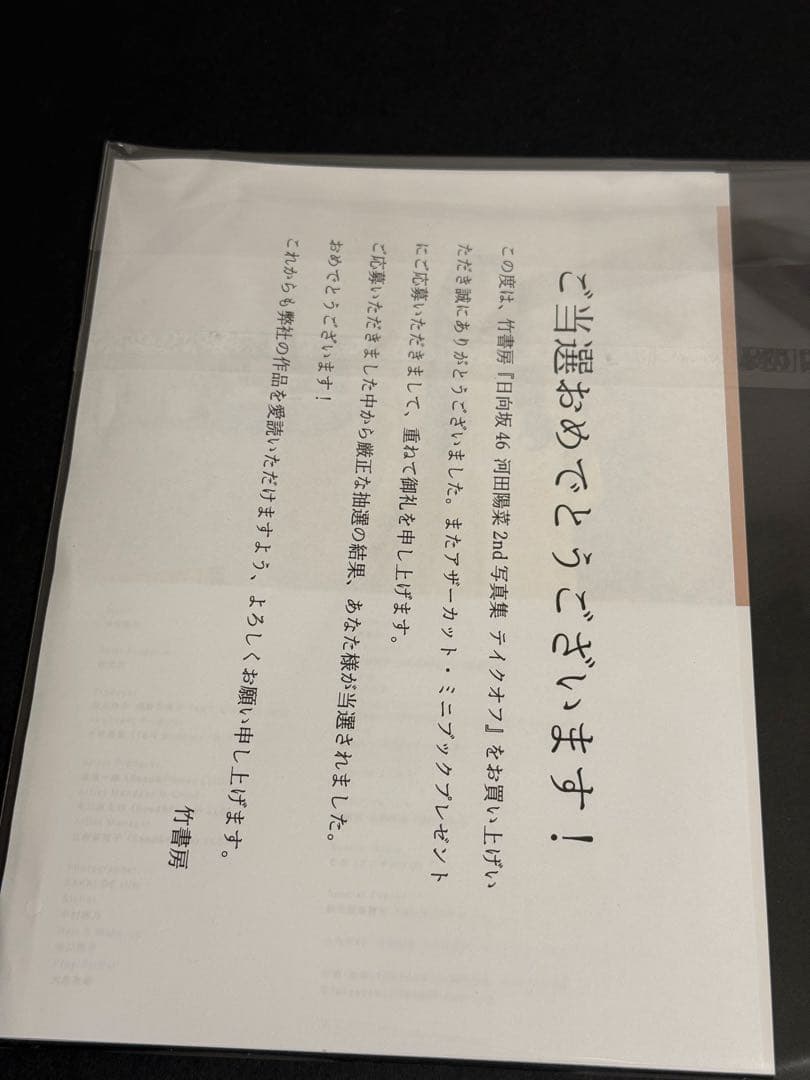 ご当選おめでとうございます！
この度は、竹書房『日向坂46 河田陽菜 2nd 写真集 テイクオフ』をお買い上げい
ただき誠にありがとうございました。またアザーカット・ミニブックプレゼント
にご応募いただきまして、重ねて御礼を申し上げます。
ご応募いただきました中から厳正な抽選の結果、あなた様が当選されました。
おめでとうございます！
これからも弊社の作品を愛読いただけますよう、よろしくお願い申し上げます。
竹書房